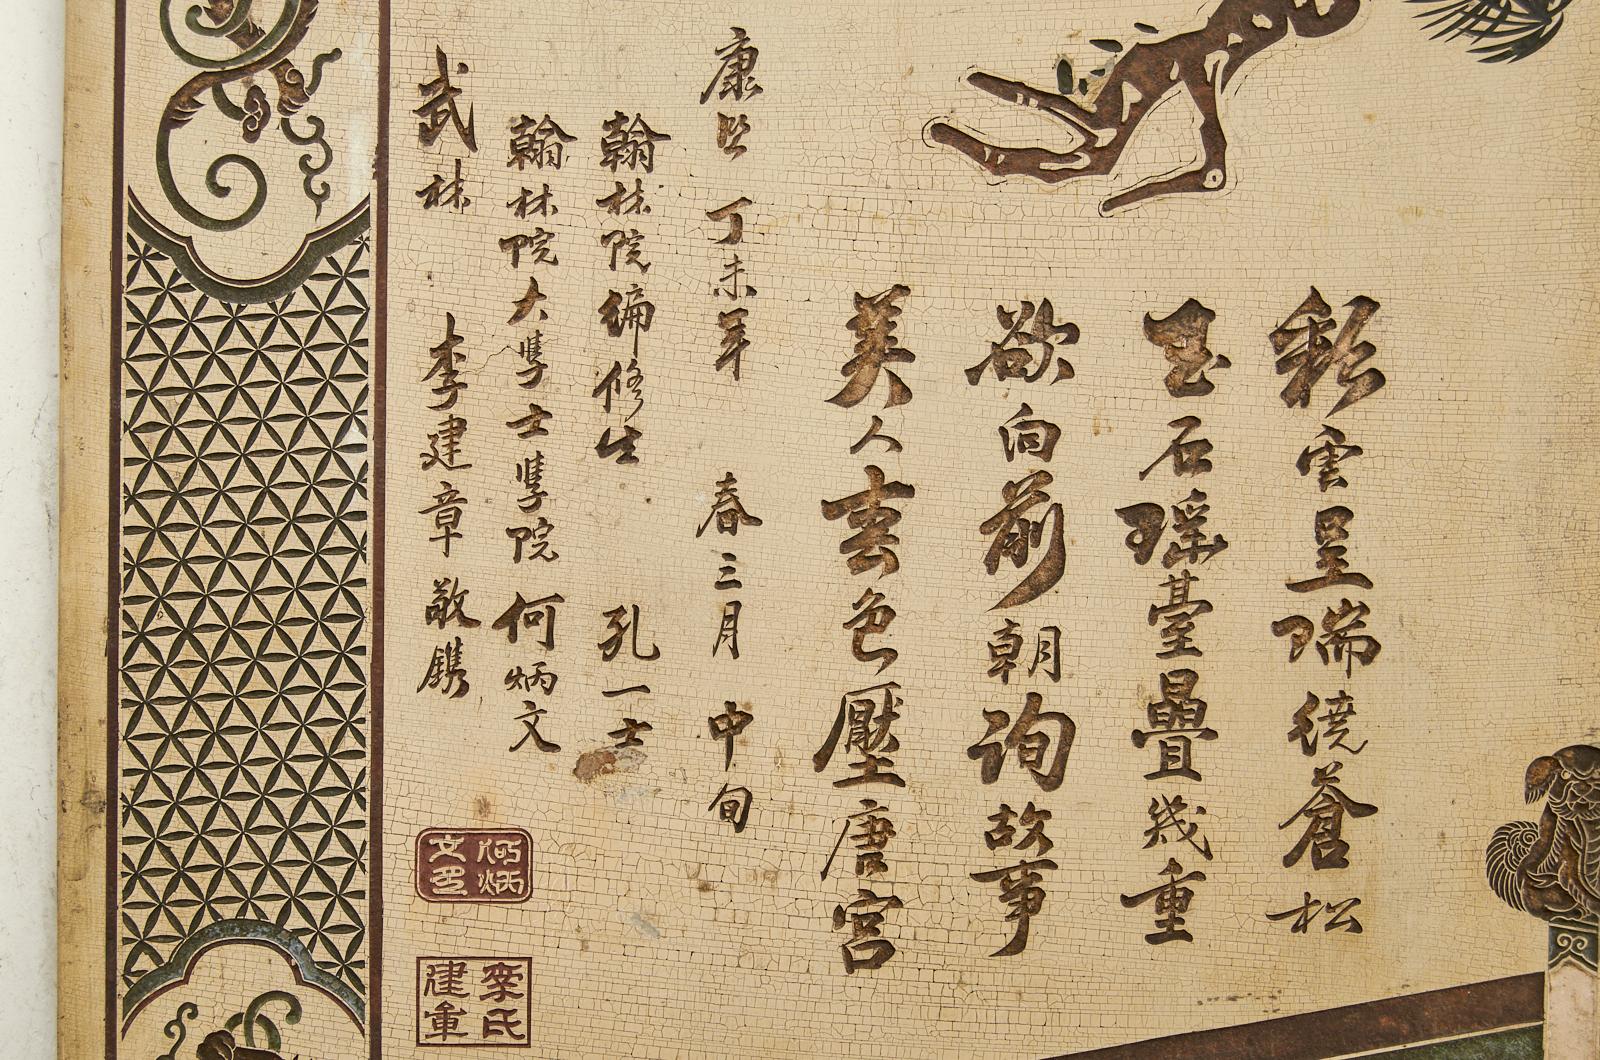 彩雲呈瑞繞蒼松
玉石瑶臺疊幾重
欲向前朝詢故事
美人雲色壓唐宮
康熙丁未年春三月中旬
翰林院編修生孔一士
翰林院大學士學院何炳文
武林李建章敬鐫
何炳文印
李氏建章